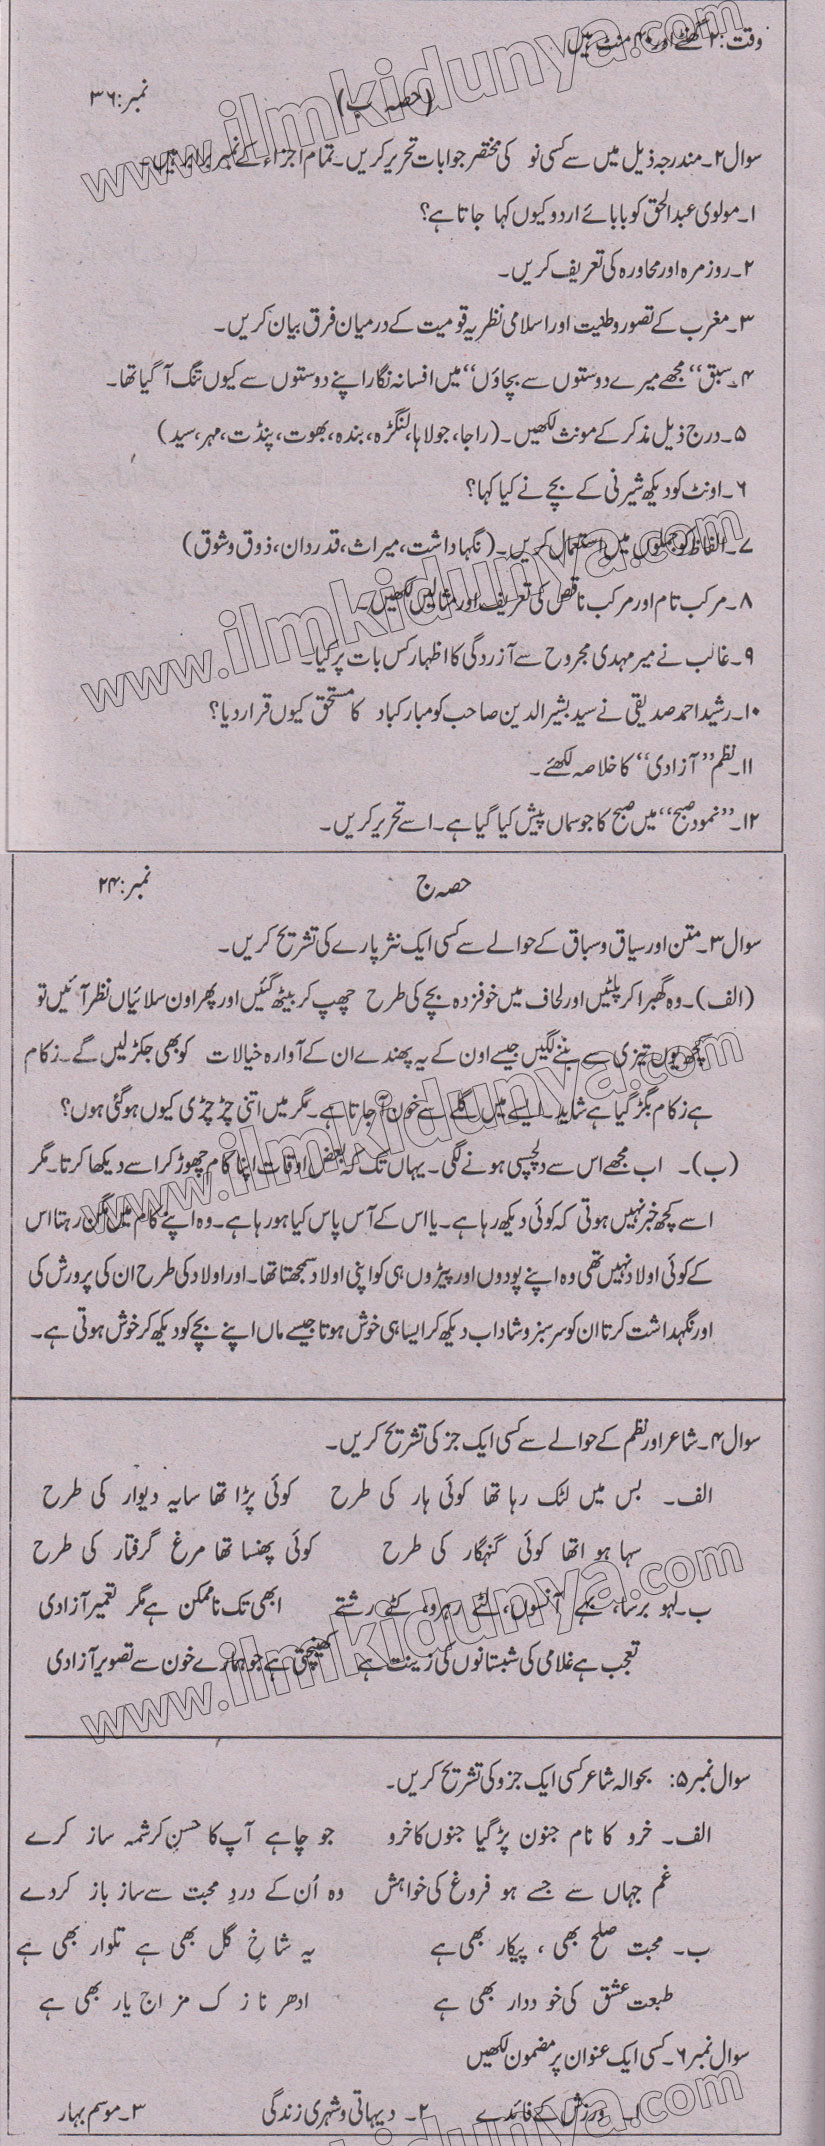 وقت: ۲ گھنٹے اور ۴۰ منٹ ہیں
(حصہ ب) نمبر: ۳۶
سوال ۲۔ مندرجہ ذیل میں سے کسی نو کی مختصر جوابات تحریر کریں۔ تمام اجزاء کے نمبر برابر ہیں۔
۱۔ مولوی عبدالحق کو بابائے اردو کیوں کہا جاتا ہے؟
۲۔ روزمرہ اور محاورہ کی تعریف کریں۔
۳۔ مغرب کے تصور وطنیت اور اسلامی نظریہ قومیت کے درمیان فرق بیان کریں۔
۴۔ سبق "مجھے میرے دوستوں سے بچاؤں" میں افسانہ نگار اپنے دوستوں سے کیوں تنگ آ گیا تھا۔
۵۔ درج ذیل مذکر کے مونث لکھیں۔ (راجا، جولاہا، لنگڑہ، بندہ، بھوت، پنڈت، مہر، سید)
۶۔ اونٹ کو دیکھ شیرنی کے بچے نے کیا کہا؟
۷۔ الفاظ کو جملوں میں استعمال کریں۔ (نگہاداشت، میراث، قدردان، ذوق و شوق)
۸۔ مرکب تام اور مرکب ناقص کی تعریف اور مثالیں لکھیں۔
۹۔ غالب نے میر مہدی مجروح سے آزردگی کا اظہار کس بات پر کیا۔
۱۰۔ رشید احمد صدیقی نے سید بشیر الدین صاحب کو مبارکباد کا مستحق کیوں قرار دیا؟
۱۱۔ نظم "آزادی" کا خلاصہ لکھئے۔
۱۲۔ "نمود صبح" میں صبح کا جو سماں پیش کیا گیا ہے۔ اسے تحریر کریں۔
حصہ ج نمبر: ۲۴
سوال ۳۔ متن اور سیاق و سباق کے حوالے سے کسی ایک نثر پارے کی تشریح کریں۔
(الف)۔ وہ گھبرا کر پلٹیں اور لحاف میں خوفزدہ بچے کی طرح چھپ کر بیٹھ گئیں اور پھر اون سلائیاں نظر آئیں تو
کچھ یوں تیزی سے بننے لگیں جیسے اون کے یہ پھندے ان کے آوارہ خیالات کو بھی جکڑ لیں گے۔ زکام
ہے زکام بگڑ گیا ہے شاید۔ ایسے میں گلے سے خون آ جاتا ہے۔ مگر میں اتنی چڑچڑی کیوں ہو گئی ہوں؟
(ب)۔ اب مجھے اس سے دلچسپی ہونے لگی۔ یہاں تک کہ بعض اوقات اپنا کام چھوڑ کر اسے دیکھا کرتا۔ مگر
اسے کچھ خبر نہیں ہوتی کہ کوئی دیکھ رہا ہے۔ یا اس کے آس پاس کیا ہو رہا ہے۔ وہ اپنے کام میں مگن رہتا اس
کے کوئی اولاد نہیں تھی وہ اپنے پودوں اور پیڑوں ہی کو اپنی اولاد سمجھتا تھا۔ اور اولاد کی طرح ان کی پرورش کی
اور نگہداشت کرتا ان کو سرسبز و شاداب دیکھ کر ایسا ہی خوش ہوتا جیسے ماں اپنے بچے کو دیکھ کر خوش ہوتی ہے۔
سوال ۴۔ شاعر اور نظم کے حوالے سے کسی ایک جز کی تشریح کریں۔
الف۔ بس میں لٹک رہا تھا کوئی ہار کی طرح کوئی پڑا تھا سایہ دیوار کی طرح
سہا ہوا تھا کوئی گنہگار کی طرح کوئی پھنسا تھا مرغ گرفتار کی طرح
ب۔ لہو برسا، بہے آنسوں، لٹے رہرو، کٹے رشتے ابھی تک ناممکن ہے مگر تعمیر آزادی
تعجب ہے غلامی کی شبستانوں کی زینت ہے کھینچتی ہے جو ہمارے خون سے تصویر آزادی
سوال نمبر ۵: بحوالہ شاعر کسی ایک جزو کی تشریح کریں۔
الف۔ خرو کا نام جنون پڑ گیا جنوں کا خرو جو چاہے آپ کا حسنِ کرشمہ ساز کرے
غم جہاں سے جسے ہو فروغ کی خواہش وہ اُن کے دردِ محبت سے ساز باز کردے
ب۔ محبت صلح بھی، پیکار بھی ہے یہ شاخِ گل بھی ہے تلوار بھی ہے
طبعت عشق کی خود دار بھی ہے ادھر نازک مزاج یار بھی ہے
سوال نمبر ۶۔ کسی ایک عنوان پر مضمون لکھیں
۱۔ ورزش کے فائدے ۲۔ دیہاتی و شہری زندگی ۳۔ موسم بہار
www.ilmkidunya.com
www.ilmkidunya.com
www.ilmkidunya.com
www.ilmkidunya.com
www.ilmkidunya.com